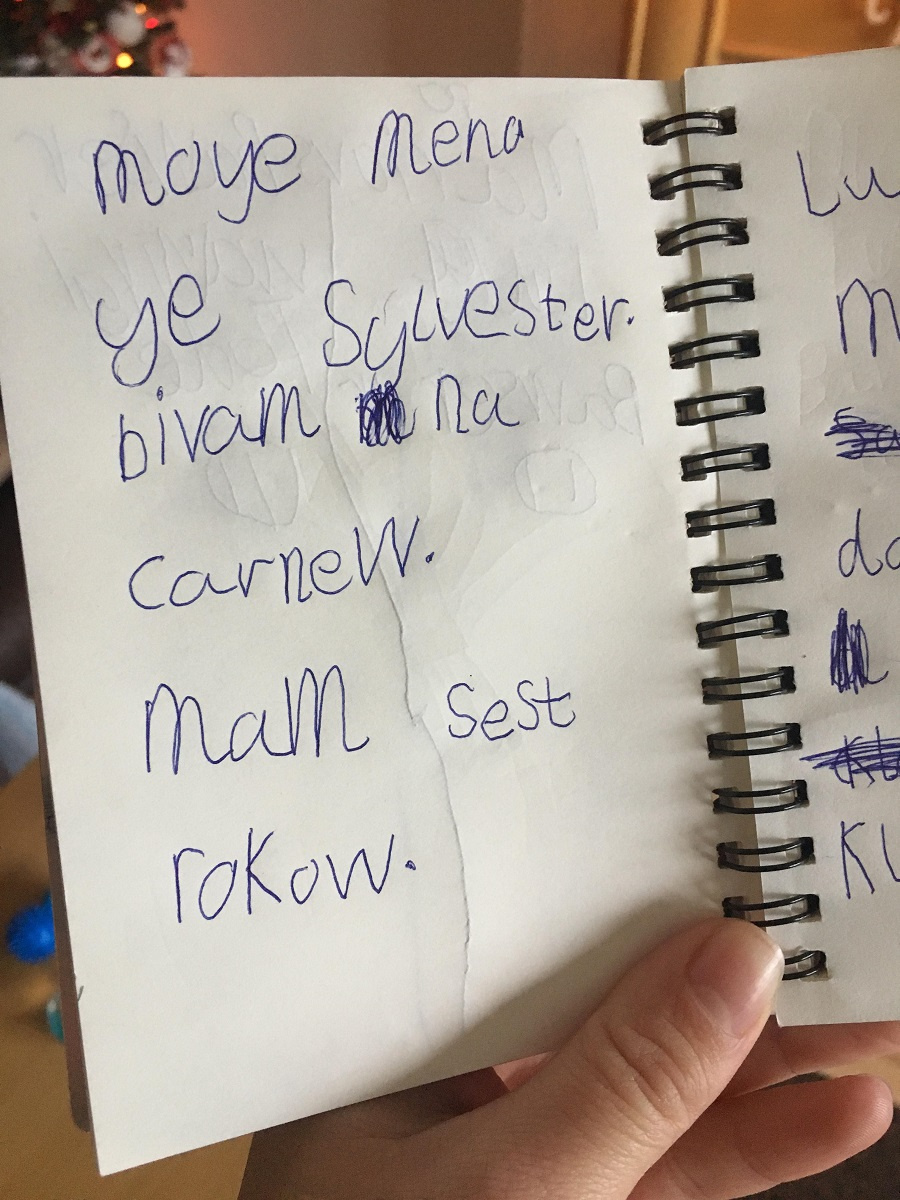 moye Mena
ye Sylvester.
bivam na
carneW.
MaM sest
roKow.
Lu
M
da
KL